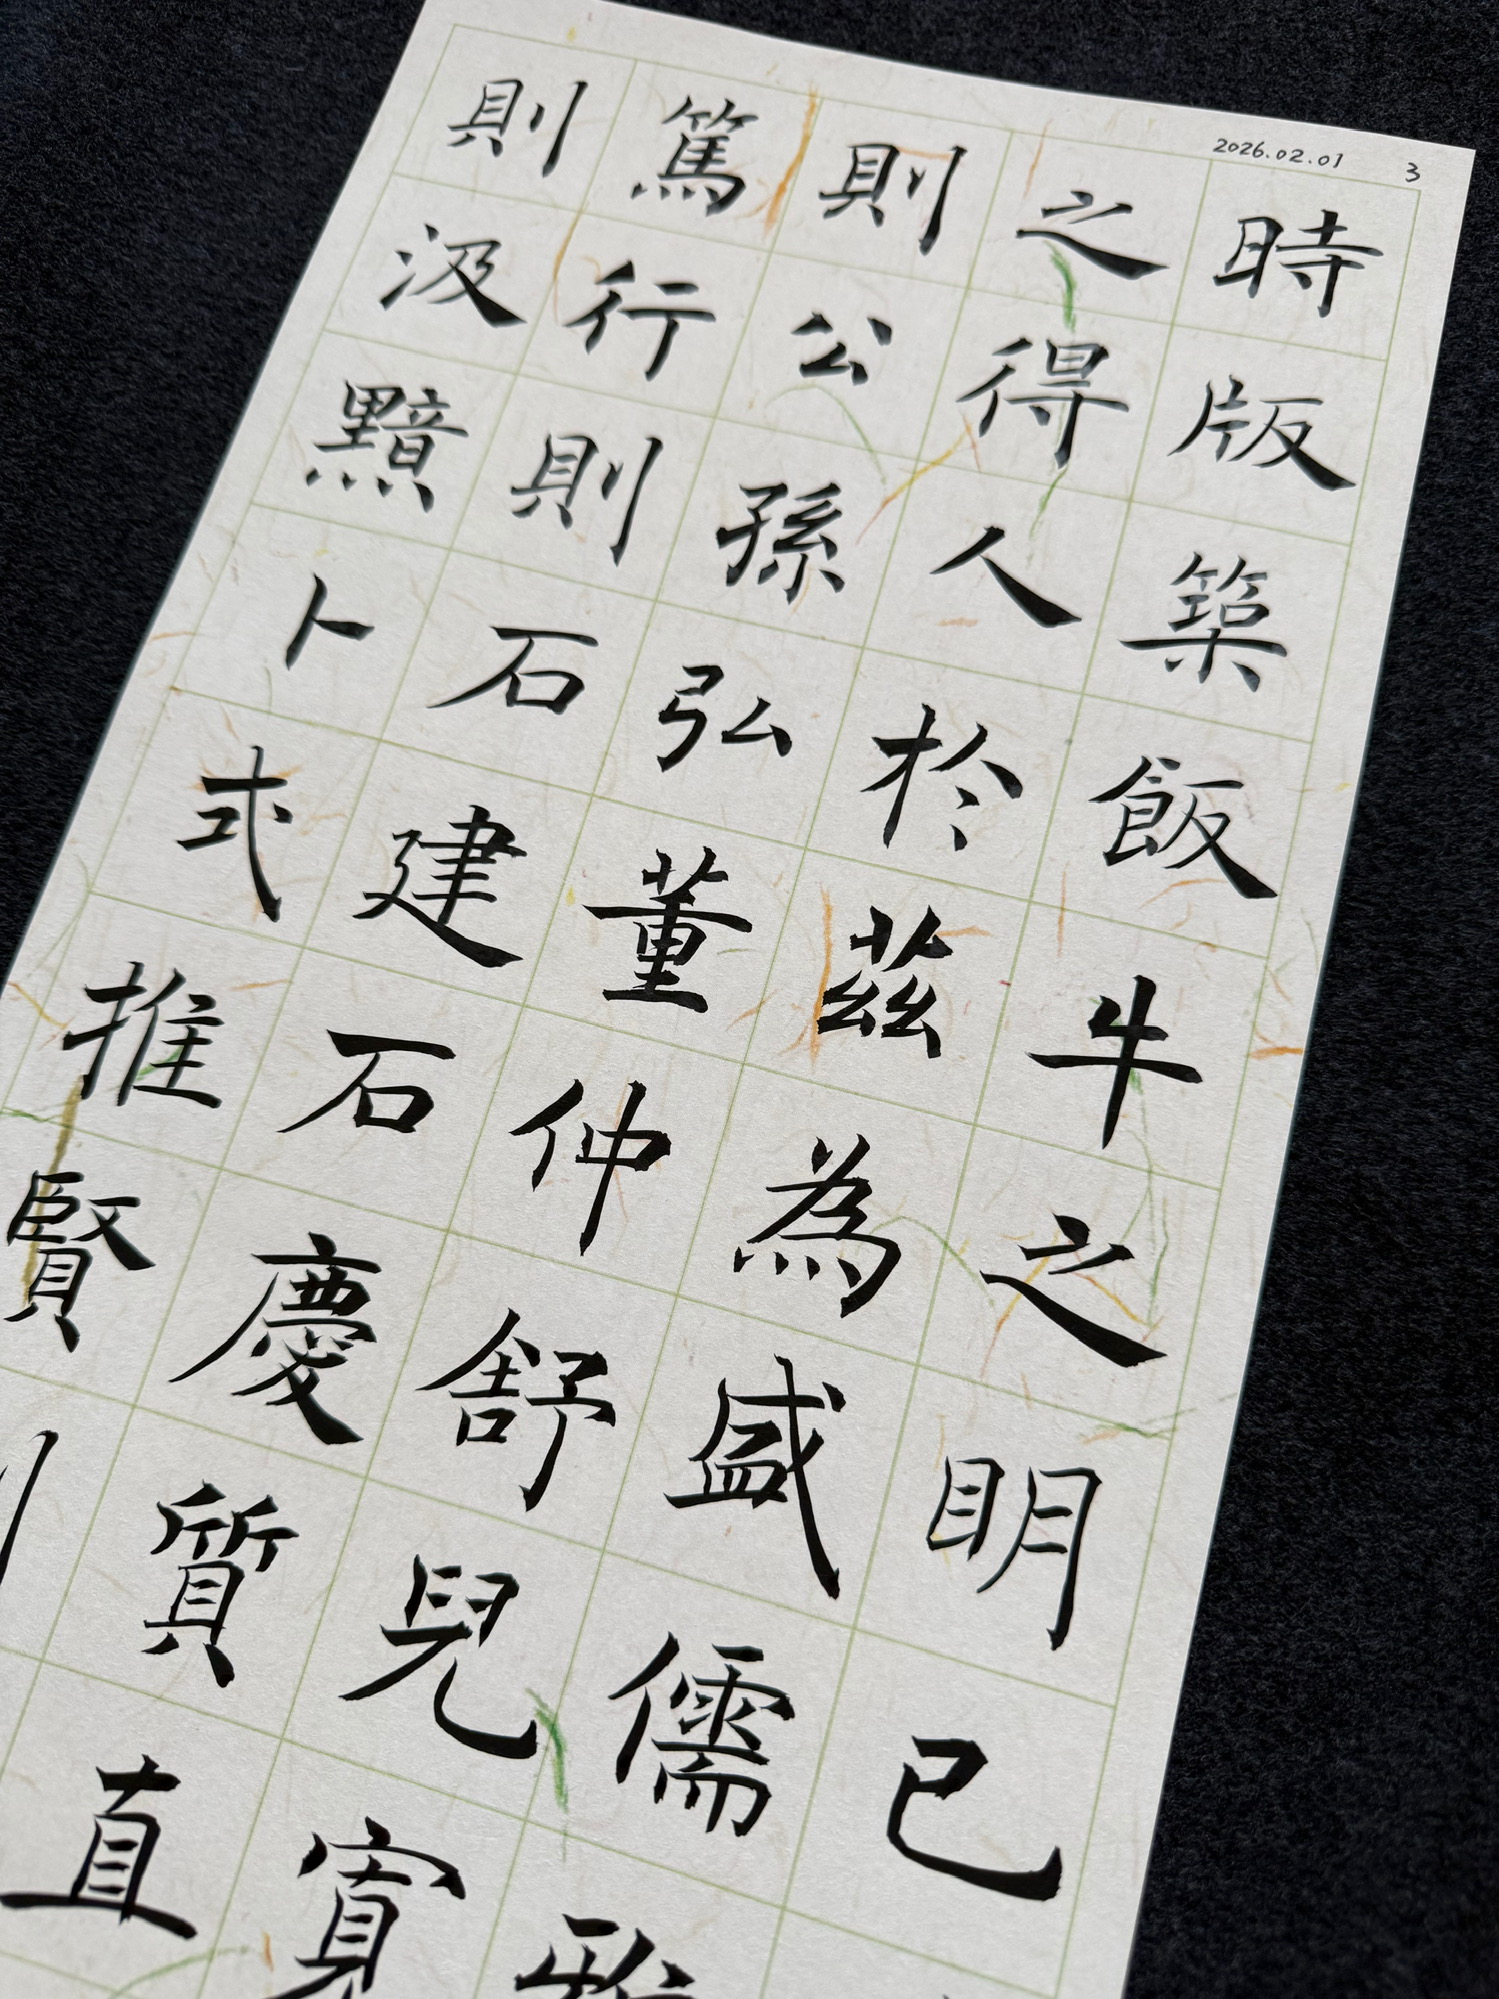 2026.02.01 3
時版築飯牛之明已
之得人於茲為盛儒
則公孫弘董仲舒兒寬
篤行則石建石慶質直
則汲黯卜式推賢